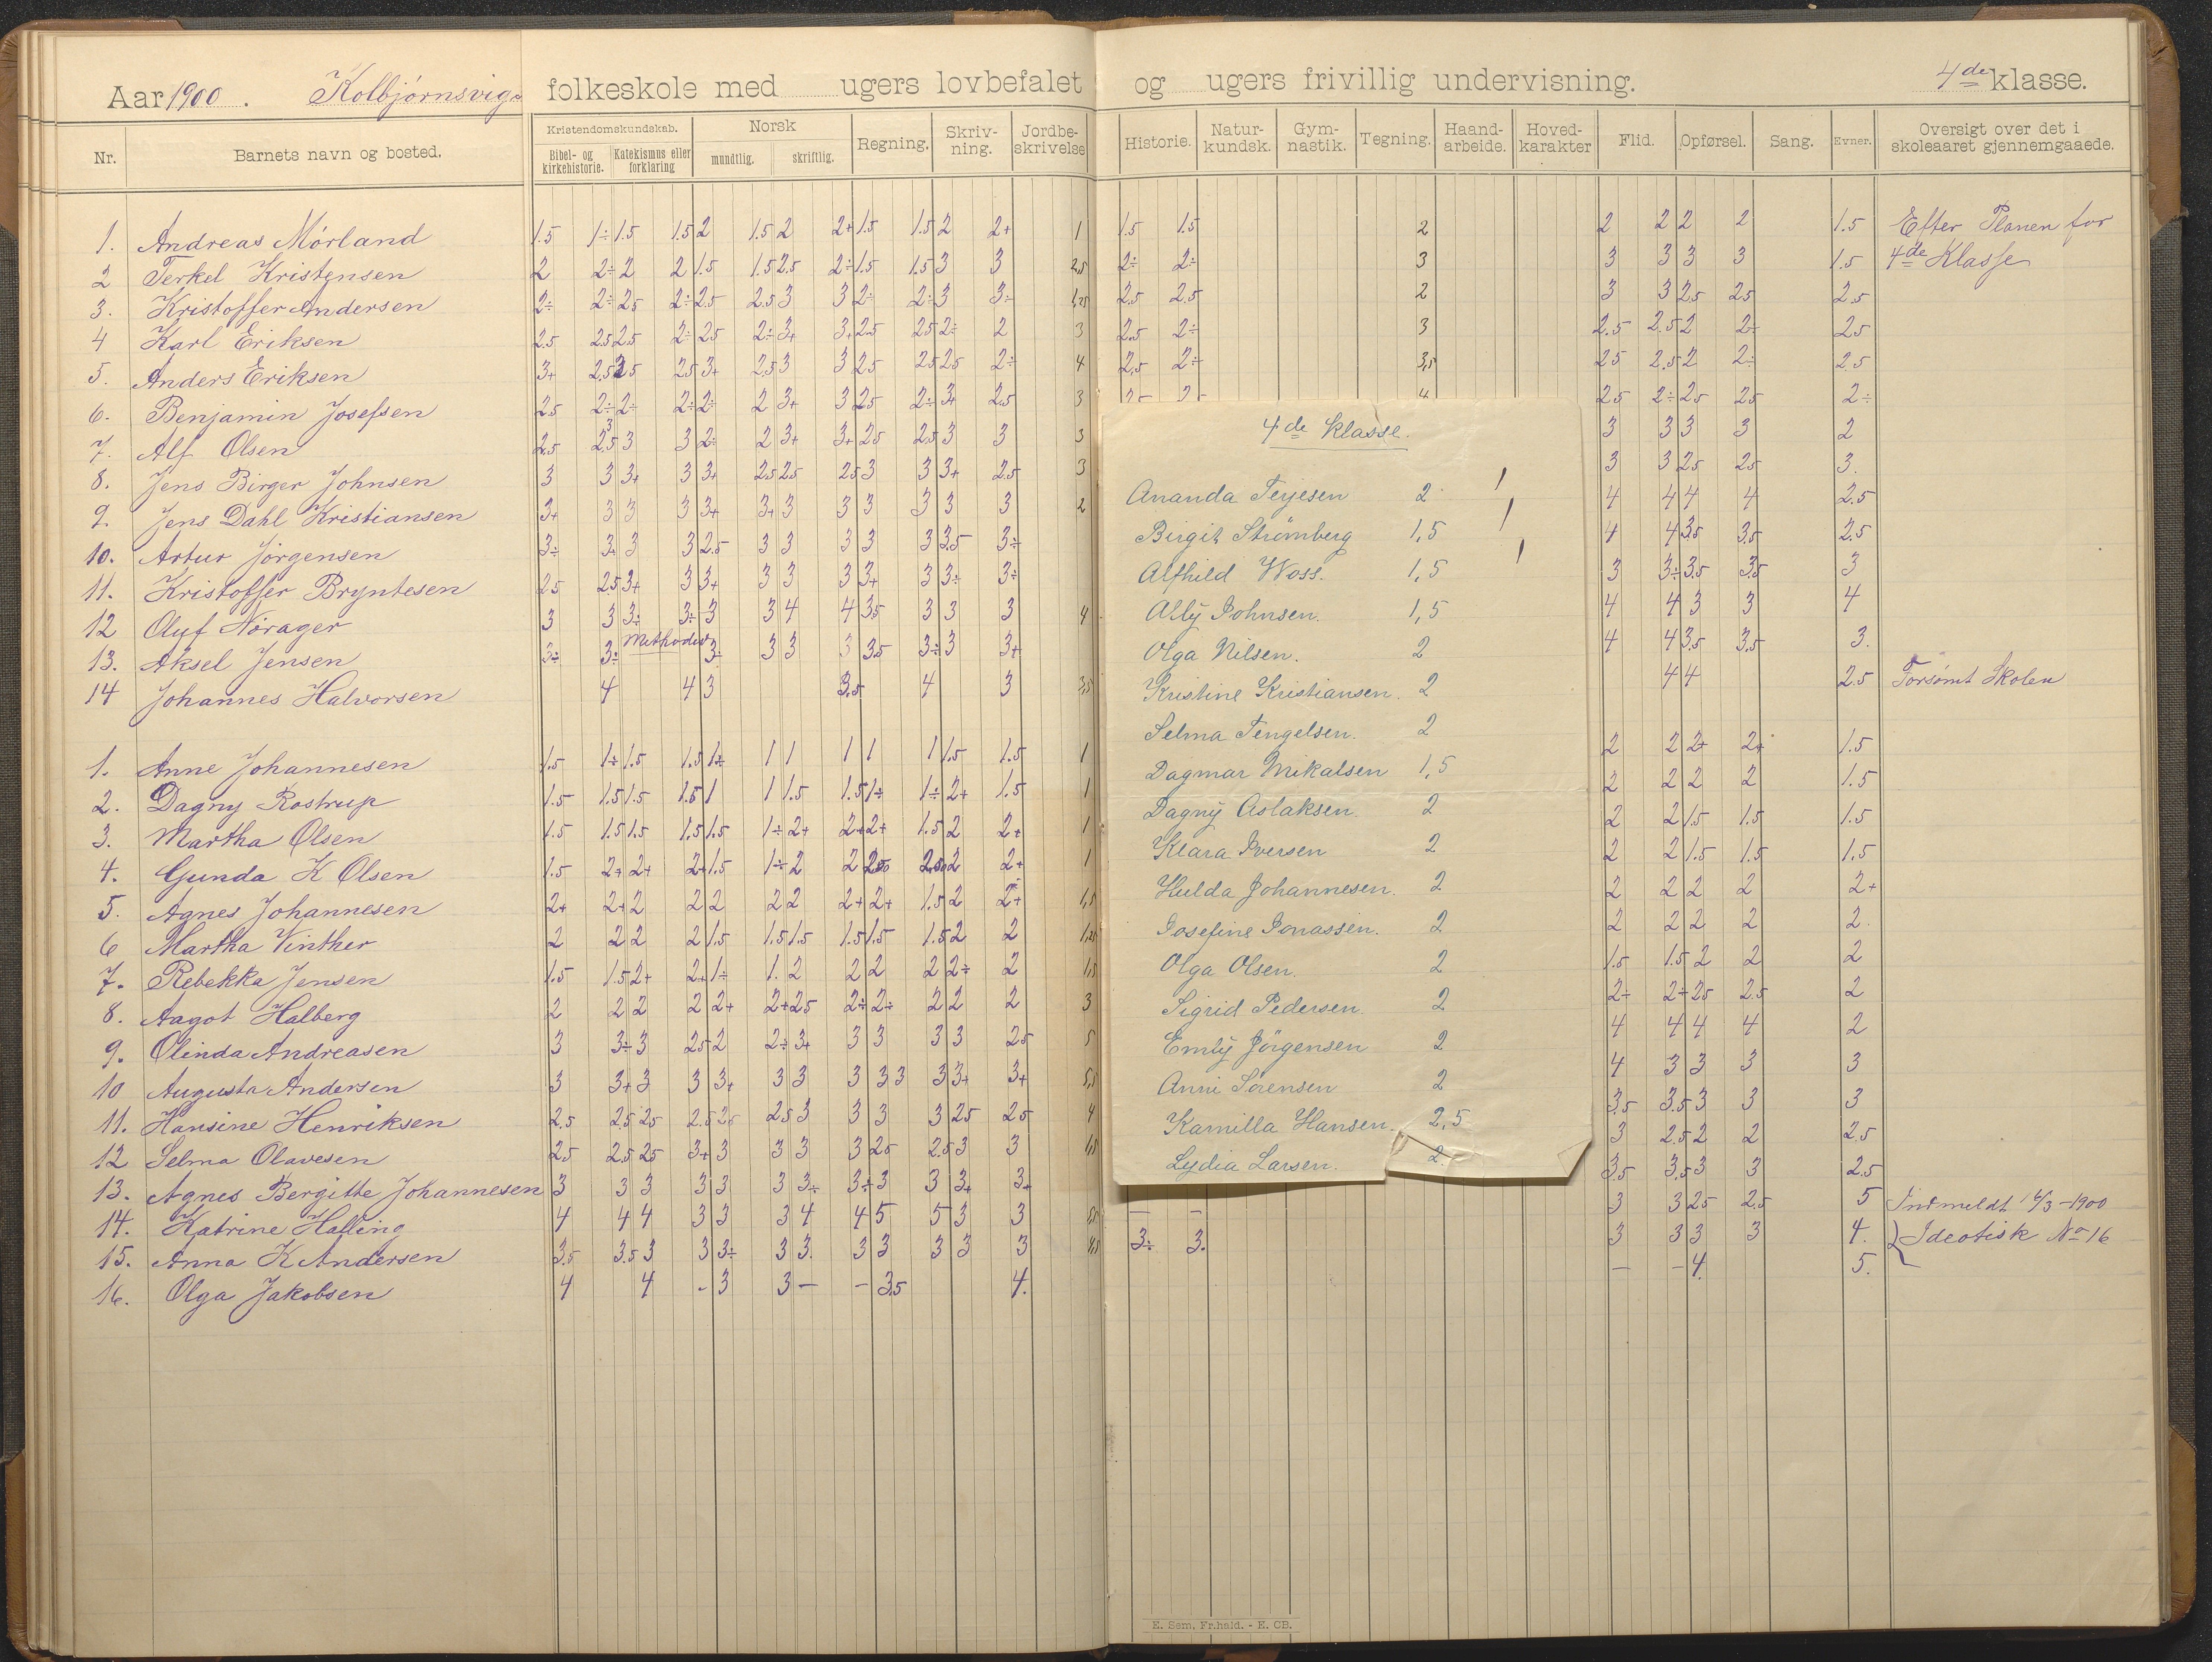 Aar 1900. Kolbjørnsvigs folkeskole med ugers lovbefalet og ugers frivillig undervisning. 4de klasse.
Nr.
Barnets navn og bosted.
Kristendomskundskab.
Bibel- og kirkehistorie.
Katekismus eller forklaring
Norsk
mundtlig.
skriftlig.
Regning.
Skriv-ning.
Jordbe-skrivelse
Historie.
Natur-kundsk.
Gym-nastik.
Tegning.
Haand-arbeide.
Hoved-karakter
Flid.
Opførsel.
Sang.
Evner.
Oversigt over det i skoleaaret gjennemgaaede.
1. Andreas Mørland 1.5 1÷ 1.5 1.5 2 1.5 2 2+ 1.5 1.5 2 2+ 1 1.5 1.5 2 2 2 2 2 1.5 Efter Planen for
2 Terkel Kristensen 2 2÷ 2 2 1.5 1.5 2.5 2÷ 1.5 1.5 3 3 2,5 2÷ 2÷ 3 3 3 3 3 1.5 4de Klasse
3. Kristoffer Andersen 2÷ 2÷ 2.5 2÷ 2.5 2.5 3 3 2÷ 2÷ 3 3÷ 1,25 2.5 2.5 2 3 3 2.5 2.5 2.5
4 Karl Eriksen 2.5 2.5 2.5 2÷ 2.5 2÷ 3+ 3+ 2.5 2.5 2÷ 2 3 2.5 2÷ 3 2.5 2.5 2 2÷ 2.5
5. Anders Eriksen 3+ 2.5 2.5 2.5 3+ 2.5 3 3 2.5 2.5 2.5 2÷ 4 2.5 2÷ 3,5 2.5 2.5 2 2÷ 2.5
6. Benjamin Josefsen 2.5 2÷ 2÷ 2÷ 2÷ 2 3+ 3 2.5 2÷ 3+ 2.5 3 2.5 2÷ 2.5 2.5 2÷
7. Alf Olsen 2.5 2.5 3 3 3 2÷ 2 3+ 3+ 2.5 2.5 3 3 3 3 3 3 3 2
8. Jens Birger Johnsen 3 3 3+ 3 3+ 2.5 2.5 2.5 3 3 3+ 2.5 3 3 3 2.5 2.5 3.
9. Jens Dahl Kristiansen 3+ 3 3 3 3+ 3+ 3 3 3 3 3 3 2 4 4 4 4 2.5
10. Artur Jørgensen 3÷ 3+ 3 3 2.5 3 3 3 3 3 3.5 3÷ 4 4 3.5 3.5 2.5
11. Kristoffer Bryntesen 2.5 2.5 3+ 3 3+ 3 3 3 3+ 3 3÷ 3÷ 3 3÷ 3.5 3.5 3
12 Oluf Nørager 3 3 3÷ 3÷ 3 3 4 4 3.5 3 3 3 4 4 4 3 3 4
13. Aksel Jensen 3÷ 3÷ Methodist 3÷ 3 3 3 3.5 3÷ 3 3+ 4 4 3.5 3.5 3.
14 Johannes Halvorsen 4 4 3 3.5 4 3 3,5 4 4 2.5 Forsømt Skolen
1. Anne Johannesen 1.5 1÷ 1.5 1.5 1÷ 1 1 1 1 1 1.5 1.5 1 2 2 2+ 2+ 1.5
2. Dagny Rostrup 1.5 1.5 1.5 1.5 1 1 1.5 1.5 1÷ 1÷ 2+ 1.5 1 2 2 2 2 1.5
3. Martha Olsen 1.5 1.5 1.5 1.5 1.5 1÷ 2+ 2+ 2+ 1.5 2 2+ 1 2 2 1.5 1.5 1.5
4. Gunda K Olsen 1.5 2+ 2+ 2+ 1.5 1÷ 2 2 2.00 2.00 2 2+ 1 2 2 1.5 1.5 1.5
5. Agnes Johannesen 2+ 2+ 2 2 2 2 2 2+ 2+ 1.5 2 2+ 1,5 2 2 2 2 2+
6 Martha Vinther 2 2 2 2 1.5 1.5 1.5 1.5 1.5 1.5 2 2 1,25 2 2 2 2 2.
7. Rebekka Jensen 1.5 1.5 2+ 2+ 1÷ 1. 2 2 2 2 2÷ 2 1,5 1.5 1.5 2 2 2
8. Aagot Halberg 2 2 2 2 2+ 2+ 2.5 2÷ 2÷ 2 2 2 3 2÷ 2÷ 2.5 2.5 2
9. Olinda Andreasen 3 3÷ 3 2.5 2 2÷ 3+ 3 3 3 3 2.5 5 4 4 4 4 2
10 Augusta Andersen 3 3+ 3 3 3+ 3 3 3 3 3 3 3+ 3+ 5,5 4 3 3 3 3
11. Hansine Henriksen 2.5 2.5 2.5 2.5 2.5 2.5 3 3 3 3 2.5 2.5 4 3.5 3.5 3 3 3
12 Selma Olavesen 2.5 2.5 2.5 3+ 3 3 3 3 2.5 2.5 3 3 1,5 3 2.5 2 2 2.5
13. Agnes Bergitte Johannesen 3 3 3 3 3 3 3÷ 3÷ 3 3 3+ 3+ 3.5 3.5 3 3 2.5
14. Katrine Halling 4 4 4 3 3 3 4 4 5 5 3 3 — — 3 3 2.5 2.5 5 Indmeldt 12/3-1900
15. Anna K Andersen 3.5 3.5 3 3 3÷ 3 3. 3 3 3 3 3 3÷ 3. 3 3 3 3 4. Ideotisk No 16
16. Olga Jakobsen 4 4 - 3 3 — — 3.5 4. — — 4. 5.
4de klasse.
Ananda Terjesen 2
Birgit Strømberg 1,5
Alfhild Woss. 1,5
Ally Johnsen. 1,5
Olga Nilsen. 2
Kristine Kristiansen. 2
Selma Tengelsen. 2
Dagmar Mikalsen 1,5
Dagny Aslaksen. 2
Klara Iversen 2
Hulda Johannesen. 2
Josefine Jonassen. 2
Olga Olsen. 2
Sigrid Pedersen. 2
Emly Jörgensen 2
Anni Sørensen 2
Kamilla Hansen. 2,5
Lydia Larsen. 2.
E. Sem, Fr.hald. - E. CB.